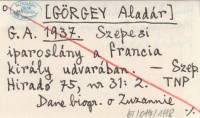 [GÖRGEY Aladár]
G. A. 1937. Szepesi
iparoslány a francia
király udvarában. — Szep.
Hiradó 75, no 31: 2. TNP
Dane biogr. o Zuzannie